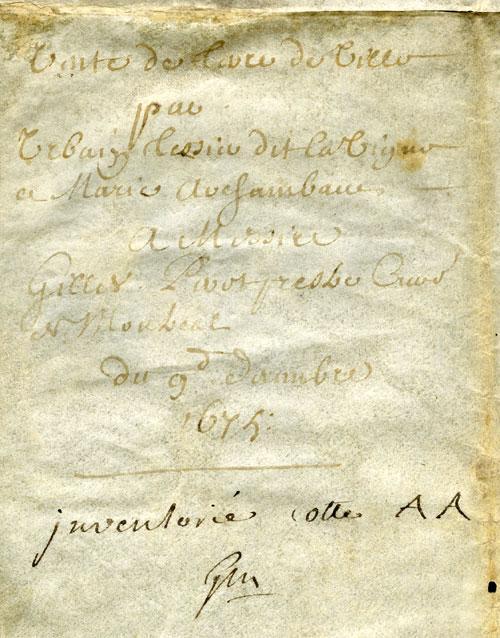 Vente de terre de Ville
par
Urbain Tessier dit la Vigne
et Marie Archambault
A Messire
Gilles Perot presbe Curé
de Montreal
du 9 d decembre
1675:
inventorié cotte AA